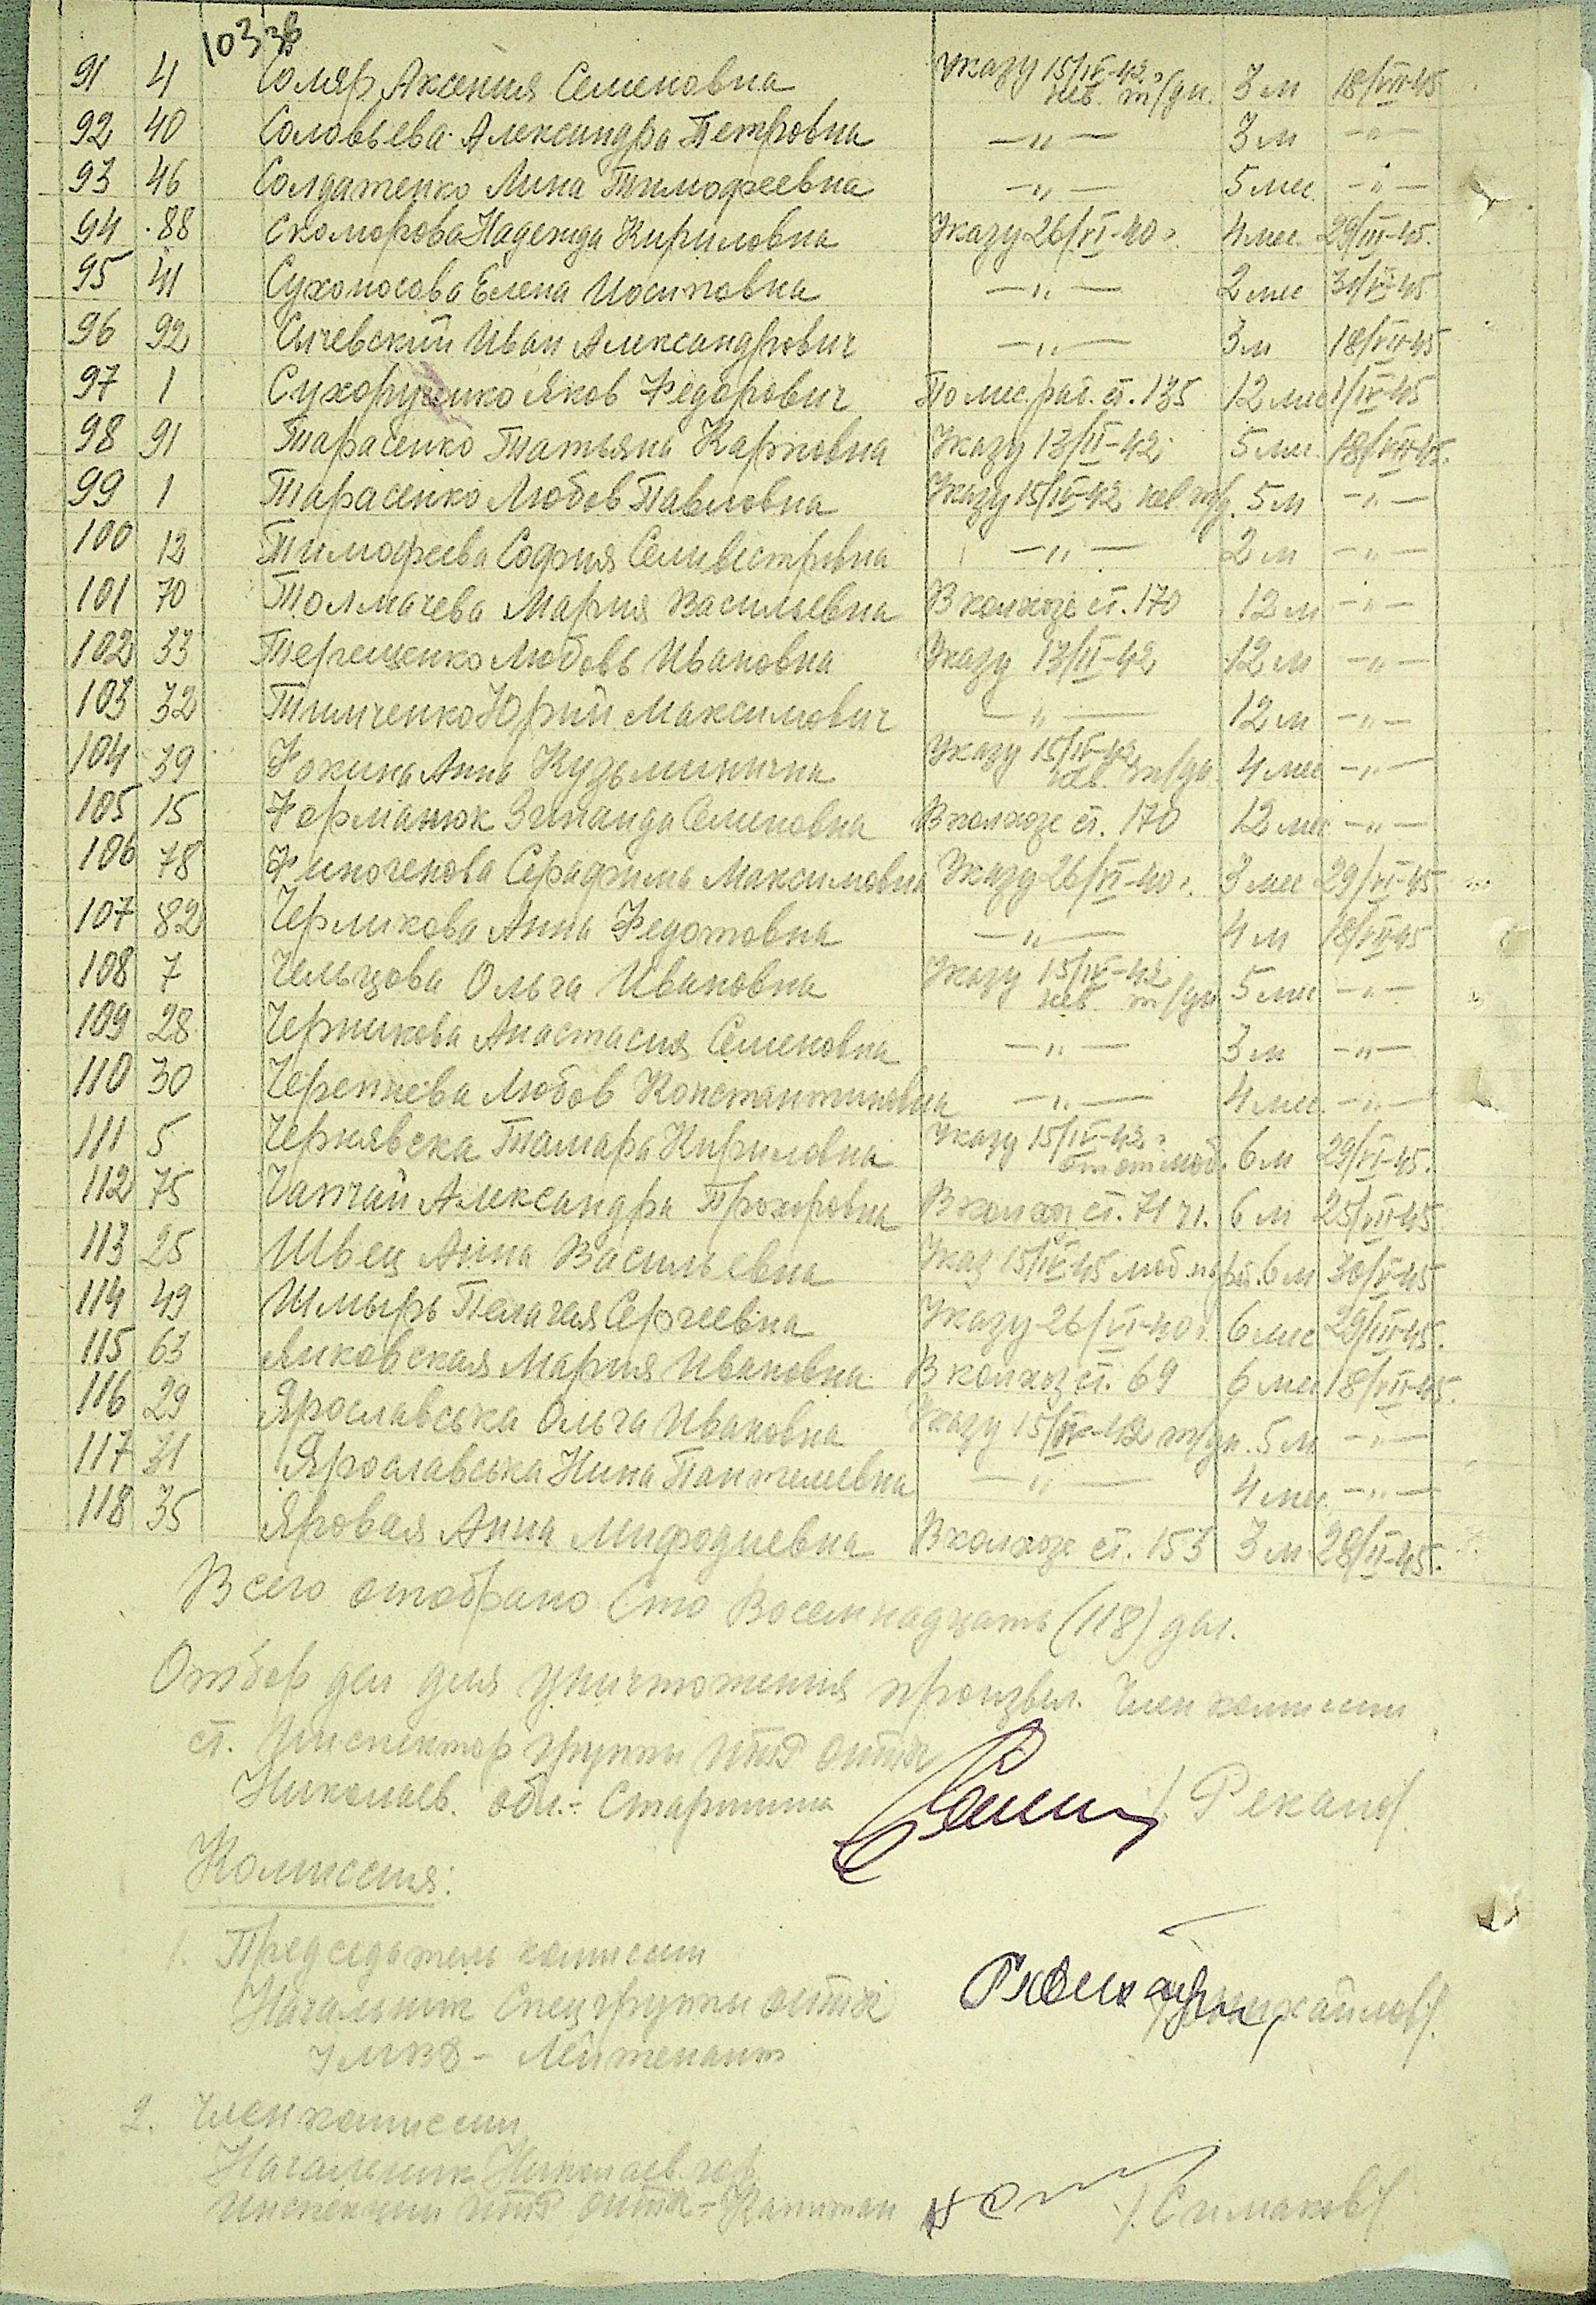 103 зв
91 4 Соляр Аксения Семеновна Указу 15/IV-42 г. нев. т/дн. 3 м 18/VII-45
92 40 Соловьева Александра Петровна —„— 3 м —„—
93 46 Солдатенко Лина Тимофеевна —„— 5 мес. —„—
94 88 Скоморова Надежда Кириловна Указу 26/VI-40 г. 4 мес. 29/III-45.
95 41 Сухоносова Елена Иосиповна —„— 2 мес
96 92 Сичевский Иван Александрович —„— 3 м 18/VII-45
97 1 Сухорученко Яков Федорович По мес. раб. ст. 135 12 мес 1/IV-45
98 91 Тарасенко Татьяна Карповна Указу 13/II-42 5 мес. 18/VII-45.
99 1 Тарасенко Любов Павловна Указу 15/IV-42 нев. т/д. 5 м —„—
100 12 Тимофеева София Селивестровна —„— 2 м —„—
101 70 Толмачева Мария Васильевна В колхозе ст. 170 12 м —„—
102 33 Терещенко Любовь Ивановна Указу 13/II-42 12 м —„—
103 32 Тимченко Юрий Максимович —„— 12 м —„—
104 39 Фокина Анна Кузьминична Указу 15/IV-42 нев. т/дн. 4 мес —„—
105 15 Форманюк Зинаида Семеновна В колхозе ст. 170 12 мес —„—
106 78 Финогенова Серафима Максимовна Указу 26/VI-40 г. 3 мес 29/VI-45
107 82 Чермикова Анна Федотовна —„— 4 м 18/VII-45
108 7 Чельцова Ольга Ивановна Указу 15/IV-42 нев. т/дн 5 мес —„—
109 28 Черникова Анастасия Семеновна —„— 3 м —„—
110 30 Черепнева Любов Константиновна —„— 4 мес. —„—
111 5 Чернявска Тамара Кириловна Указу 15/IV-42 г. от от моб. 6 м 29/VI-45.
112 75 Чапчай Александра Прохоровна В колхоз ст. 71 ч1. 6 м 25/VII-45
113 25 Швец Анна Васильевна Указ 15/IV-45 моб. 6 м 30/VI-45
114 49 Шмырь Пелагея Сергеевна Указу 26/VI-40 г. 6 мес 29/III-45.
115 63 Янковская Мария Ивановна В колхоз ст. 69 6 мес 18/VII-45.
116 29 Ярославська Ольга Ивановна Указу 15/IV-42 т/дн. 5 м —„—
117 31 Ярославська Нина Пантелеевна —„— 4 мес. —„—
118 35 Яровая Анна Мифодиевна В колхозе ст. 153 3 м 28/II-45.
Всего отобрано Сто Восемнадцать (118) дел.
Отбор дел для уничтожения произвел. Член комиссии
ст. Инспектор группи ИТР ОИТК
Николаев. обл. - Старшина /Рекало/.
Комиссия:
1. Председатель комиссии
Начальник Спецгруппы ОИТК /Михайлов/.
УМВД - Лейтенант
2. Член комиссии
Начальник Николаев. гор.
Инспекции ИТР ОИТК - Капитан /Симаков/